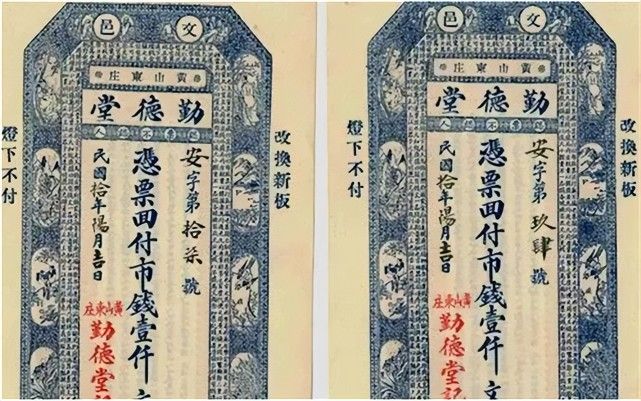 文邑
黃山東庄
勤德堂
認票不認人
改換新板
安字第拾柒號
憑票囬付市錢壹仟
民國拾年陽月吉日
黃山東庄
勤德堂記
燈下不付
文邑
黃山東庄
勤德堂
認票不認人
改換新板
安字第玖肆號
憑票囬付市錢壹仟
民國拾年陽月吉日
黃山東庄
勤德堂記
燈下不付